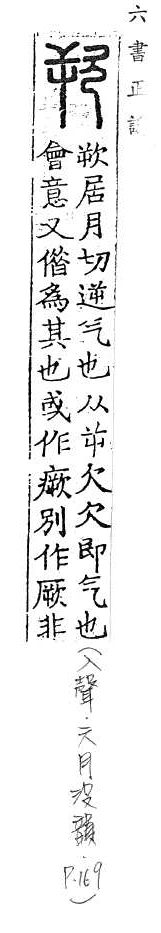 六書正譌
欮
欮居月切逆气也从屰欠欠即气也
會意又借爲其也或作瘚別作厥非
(入聲.六月沒韻.P.169)